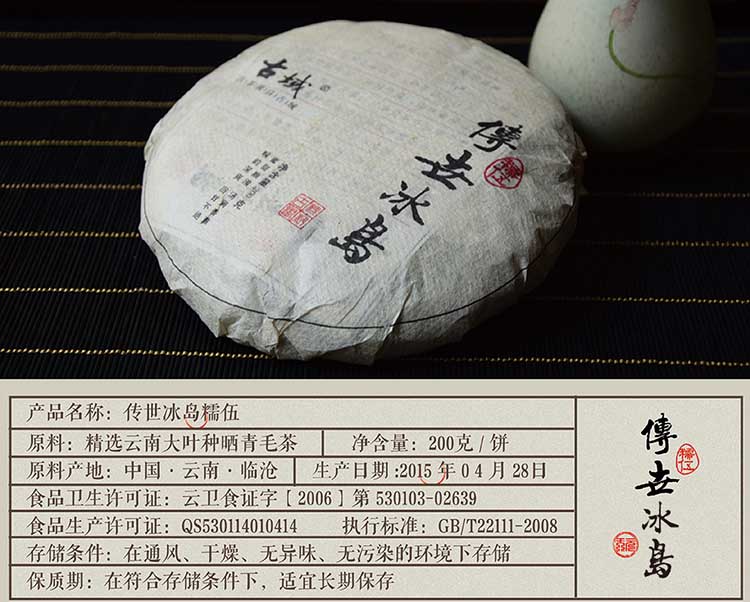 古城
傳世冰島
糯伍
产品名称：传世冰岛糯伍
原料：精选云南大叶种晒青毛茶
净含量：200克/饼
原料产地：中国·云南·临沧
生产日期:2015年04月28日
食品卫生许可证：云卫食证字［2006］第530103-02639
食品生产许可证：QS530114010414
执行标准：GB/T22111-2008
存储条件：在通风、干燥、无异味、无污染的环境下存储
保质期：在符合存储条件下，适宜长期保存
傳世冰島
糯伍